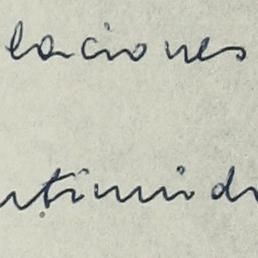 laciones
ntimid